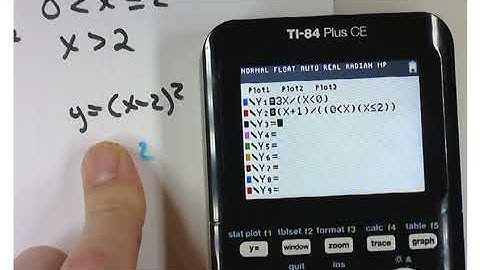 0<x≤2
x>2
y=(x-2)²
2
TI-84 Plus CE
NORMAL FLOAT AUTO REAL RADIAN MP
Plot1 Plot2 Plot3
\Y1=3X/(X<0)
\Y2=(X+1)/((0<X)(X≤2))
\Y3=
\Y4=
\Y5=
\Y6=
\Y7=
\Y8=
\Y9=
stat plot f1 tblset f2 format f3 calc f4 table f5
y= window zoom trace graph
quit ins